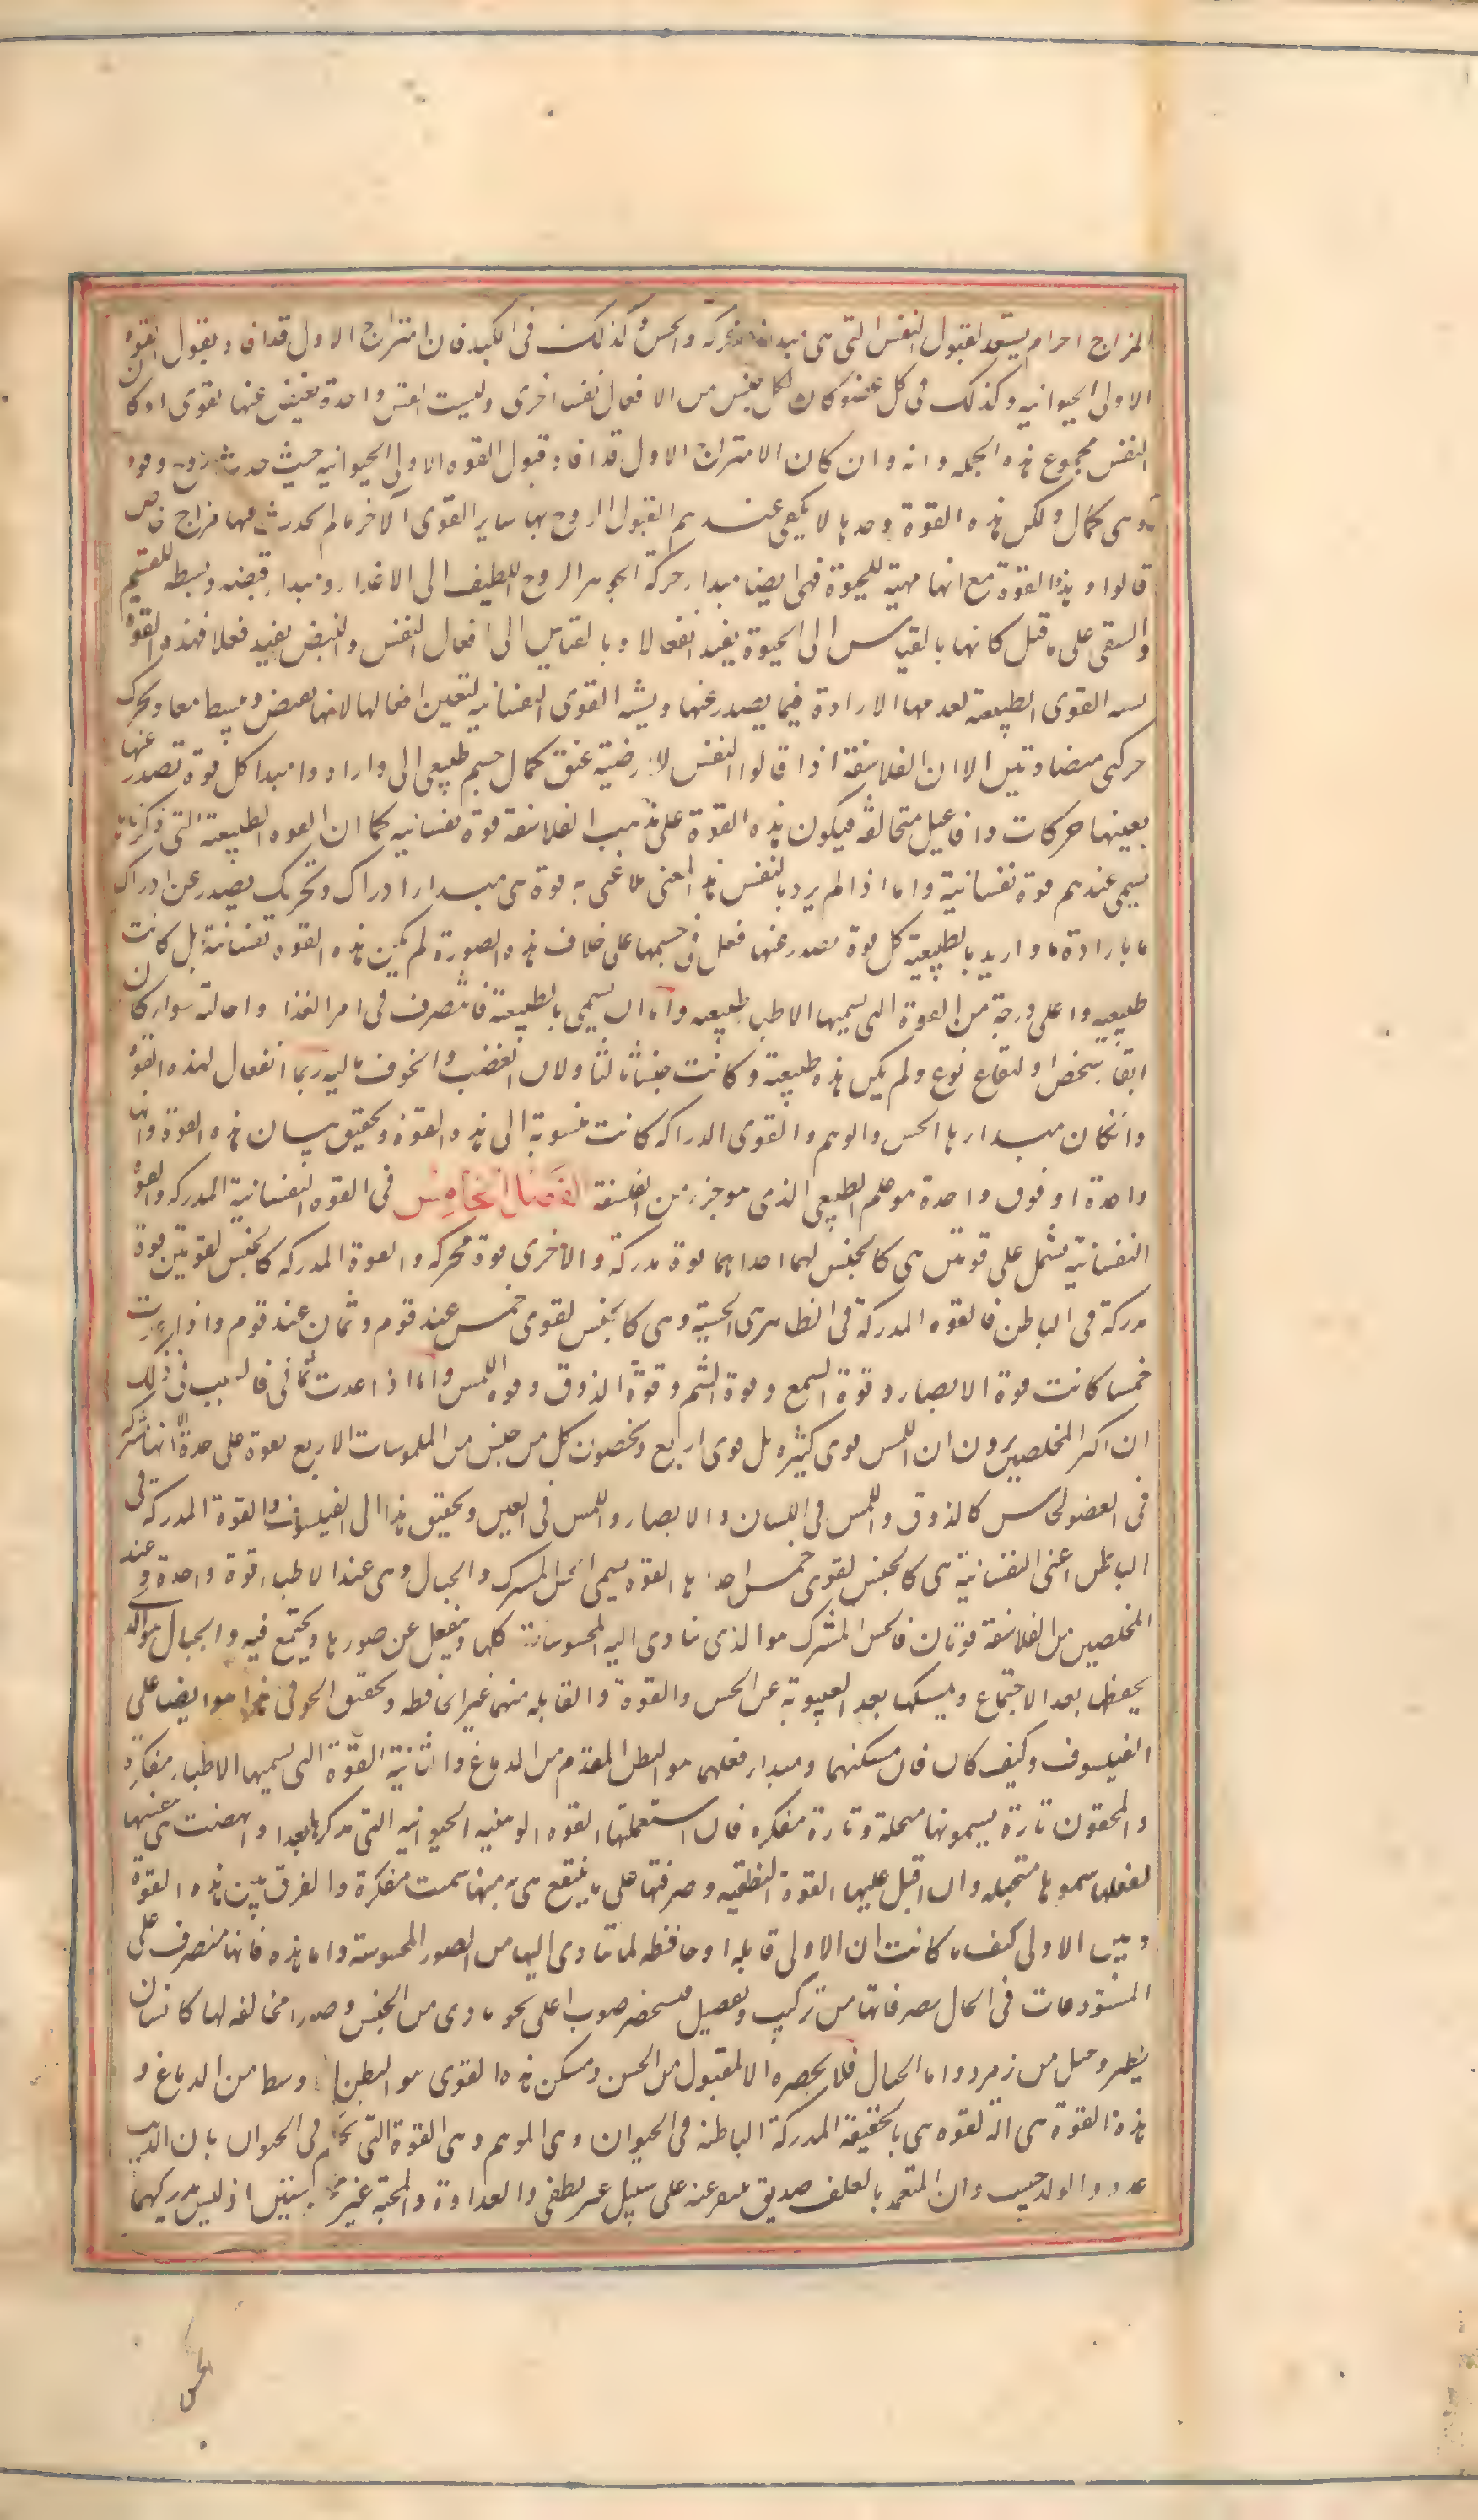 المزاج اخر ام يستعد لقبول النفس التى هى مبدأ الحركة والحس وكذلك فى الكبد فان امتزاج الاول قد افاد بقبول القوة
الاولى الحيوانيه وكذلك فى كل عضو كان لكل جنس من الافعال نفسا اخرى وليست النفس واحدة تفيض عنها القوى او كان
النفس مجموع هذه الجمله وانه وان كان الامتزاج الاول قد افاد قبول القوه الاولى الحيوانيه حيث حدث روح وقوه
هى كمال ولكن هذه القوة وحدها لا يكفى عندهم لقبول الروح بها ساير القوى الاخر ما لم يحدث فيها مزاج خاص
قالوا وهذه القوة مع انها مهية للحيوة فهى ايضا مبدا حركة الجوهر الروح اللطيف الى الاعضا ومبدا قبضه وبسطه للتنسم
والتنقى على ما قيل كانها بالقياس الى الحيوة يفيد انفعالا وبالقياس الى افعال النفس والنبض يفيد فعلا فهذه القوة
يشبه القوى الطبيعيه لعدمها الارادة فيما يصدر عنها ويشبه القوى النفسانيه لتعين افعالها لانها يقبض ويبسط معا ويحرك
حركتى متضادتين الا ان الفلاسفة اذا قالوا النفس للارضية عنوا كمال جسم طبيعى الى وارادوا مبدا كل قوة تصدر عنها
بعينها حركات وافاعيل متخالفه فيكون هذه القوة على مذهب الفلاسفة قوة نفسانيه كما ان القوه الطبيعية التى ذكرناها
يسمى عندهم قوة نفسانية واما اذا لم يرد بالنفس هذا المعنى بل عنى به قوة هى مبدا ادراك وتحريك يصدر عن ادراك
ما بارادة ما واريد بالطبيعية كل قوة يصدر عنها فعل فى جسمها على خلاف هذه الصورة لم يكن هذه القوه نفسانية بل كانت
طبيعيه واعلى درجة من القوة التى يسميها الاطبا طبيعيه واما ان يسمى بالطبيعة ما يتصرف فى امر الغذا واحالته سوا كان
ابقا شخص او لبقاع نوع ولم يكن هذه طبيعية وكانت جنسا ثالثا ولان الغضب والخوف ما اليه ربما انفعال لهذه القوة
وانكان مبدا رها الحس والوهم والقوى الدراكه كانت منسوبة الى هذه القوة وتحقيق بيان هذه القوة وانها
واحدة او فوق واحدة هو علم الطبيعى الذى هو جزء من الفلسفة الفصل الخامس فى القوه النفسانية المدركه والقوة
النفسانية يشمل على قوتين هى كالجنس لهما احداهما قوة مدركة والاخرى قوة محركه والقوة المدركه كالجنس لقوتين قوة
مدركة فى الباطن فالقوه المدركة فى الظاهر هى الحسية وهى كالجنس لقوى خمس عند قوم وثمان عند قوم واذا
خمسا كانت قوة الابصار وقوة السمع وقوة الشم وقوة الذوق وقوه اللمس واما اذا عدت ثمانى فالسبب فى ذلك
ان اكثر المخلصين يرون ان اللمس قوى كثيره بل قوى اربع ويخصون كل من جنس من الملموسات الاربع بقوة على حدة الا انها مشتركة
فى العضو الحاس كالذوق واللمس فى اللسان والابصار واللمس فى العين وتحقيق هذا الى الفيلسوف والقوة المدركة فى
الباطن اعنى النفسانية هى كالجنس لقوى خمس احداها القوه يسمى الحس المشترك والخيال وهى عند الاطبا قوة واحدة وعند
المخلصين من الفلاسفة قوتان فالحس المشترك هو الذى يتادى اليه المحسوسات كلها وينفعل عن صورها ويجتمع فيه والخيال هو الذى
يحفظها بعد الاجتماع ويمسكها بعد الغيبوبة عن الحس والقوة والقابله منهما غير الحافظه وتحقيق الحق فى هذا هو ايضا على
الفيلسوف وكيف كان فان مسكنهما ومبدا فعلهما هو البطن المقدم من الدماغ والثانية القوة التى يسميها الاطبا مفكرة
والمحققون تارة يسمونها متخيلة وتارة مفكره فان استعملتها القوه الوهميه الحيوانيه التى نذكرها بعد او نهضت هى بنفسها
لفعلها سموها متخيله وان اقبل عليها القوة النطقيه وصرفتها على ما ينتفع هى به منها سميت مفكرة والفرق بين هذه القوة
وبين الاولى كيف ما كانت ان الاولى قابله او حافظه لما يتادى اليها من الصور المحسوسة واما هذه فانها متصرف على
المستودعات فى الخيال تصرفاتها من تركيب وتفصيل فيستحضر صورا على نحو ما دى من الحس وصورا مخالفه لها كانسان
يطير وجبل من زمرد واما الخيال فلا يحضره الا المقبول من الحس ومسكن هذه القوى هو البطن الاوسط من الدماغ و
هذه القوة هى الة لقوه هى بالحقيقة المدركة الباطنه فى الحيوان وهى الوهم وهى القوة التى تحكم فى الحيوان بان الذيب
عدو والولد حبيب وان المتعهد بالعلف صديق لا ينفر عنه على سبيل غير نطقى والعداوة والمحبة غير محسوستين اذ ليس يدركهما
الحس